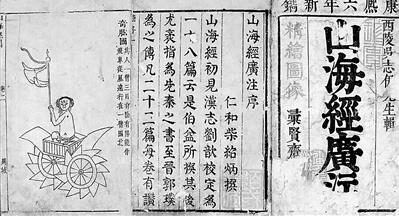 康熙六年新鐫
西陵吳志伊先生輯
山海經廣注
精繪圖像
彙賢齋
山海經廣注序
仁和柴紹炳撰
山海經初見漢志劉歆校定為
一十八篇云是伯益所撰其後
尤袤指為先秦之書至晉郭璞
為之傳凡二十二篇每卷有讚
奇肱國
其人一臂三目有陰有陽能作
飛車從風遠行在一臂國北